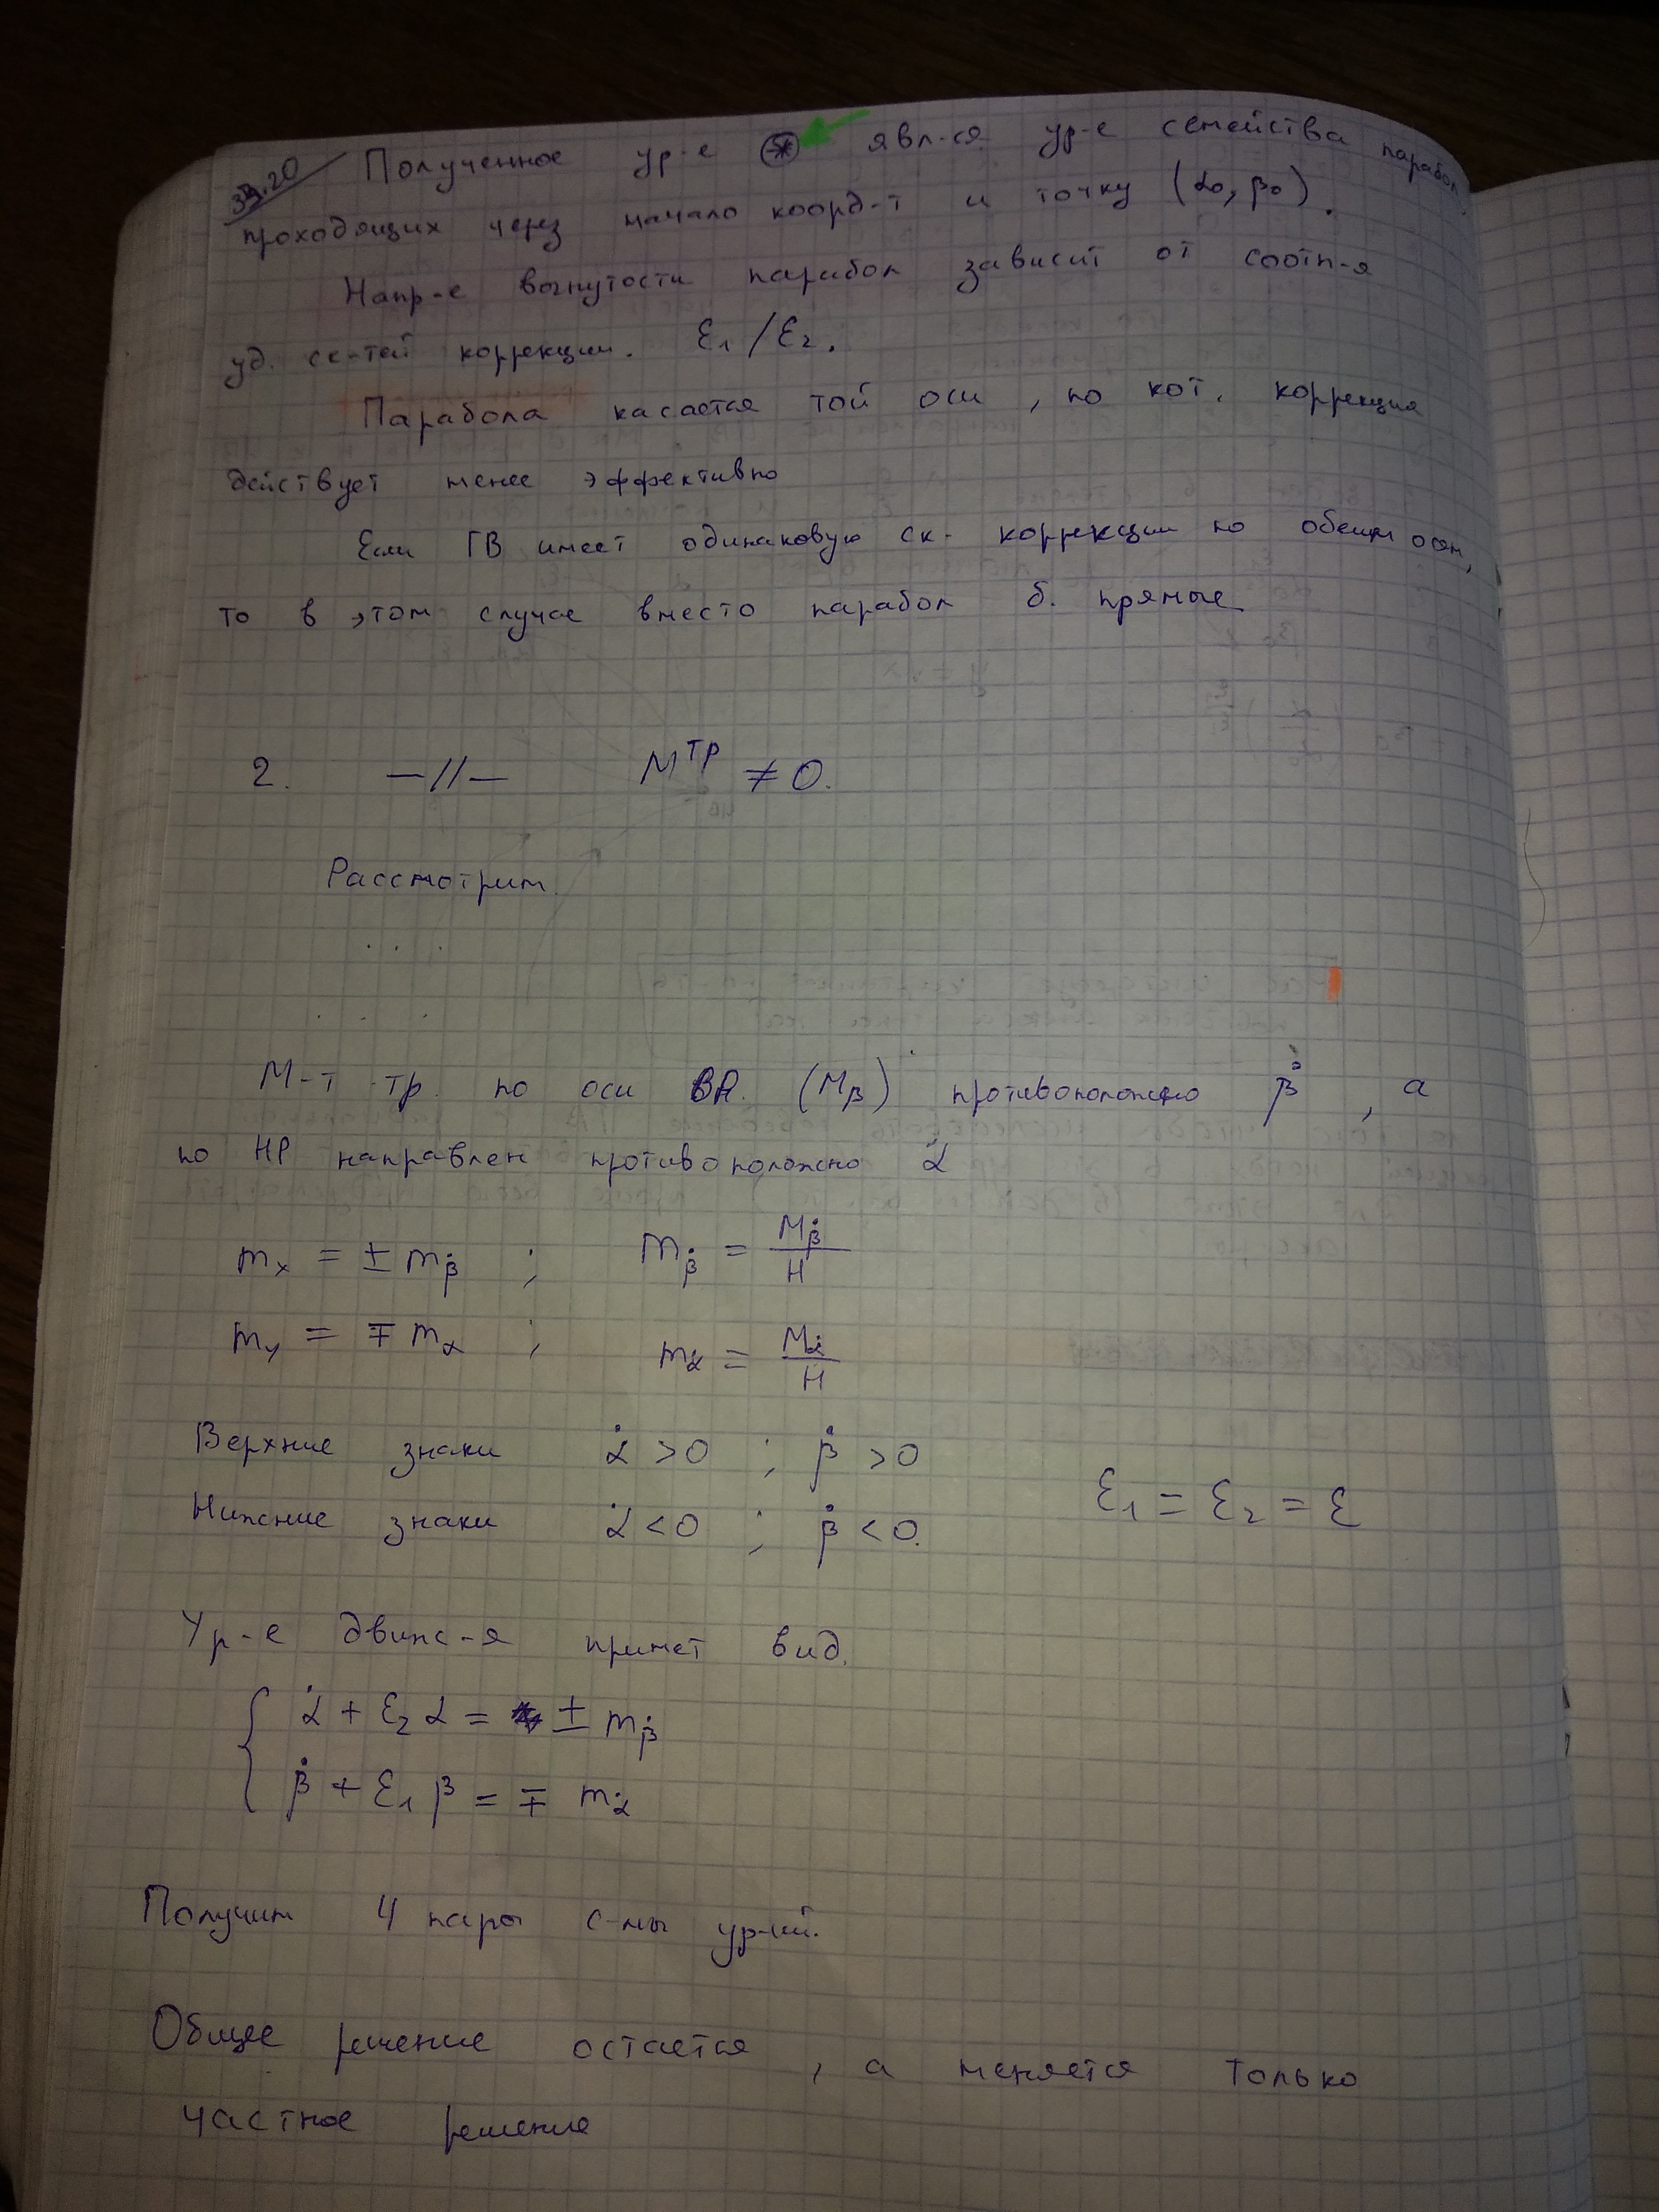 Полученное ур-е (*) явл-ся ур-е семейства парабол,
проходящих через начало коорд-т и точку (α₀, β₀).
Напр-е вогнутости парабол зависит от соотн-я
уд. ск-тей коррекции. ε₁/ε₂.
Парабола касается той оси, по кот. коррекция
действует менее эффективно
Если ГВ имеет одинаковую ск- коррекции по обеим осям,
то в этом случае вместо парабол б. прямые
2. —//— Mᵀᴾ ≠ 0.
Рассмотрим.
М-т тр. по оси ВР. (Mβ) противоположно β̇, а
по НР направлен противоположно α̇
mₓ = ± m_β̇ ; m_β̇ = M_β̇ / H
m_y = ∓ m_α ; m_α̇ = M_α̇ / H
Верхние знаки α̇ > 0 ; β̇ > 0
Нижние знаки α̇ < 0 ; β̇ < 0.
ε₁ = ε₂ = ε
Ур-е движ-я примет вид.
α̇ + ε₂ α = ± m_β̇
β̇ + ε₁ β = ∓ m_α̇
Получим 4 пары с-мы ур-ий.
Общее решение остается, а меняется только
частное решение